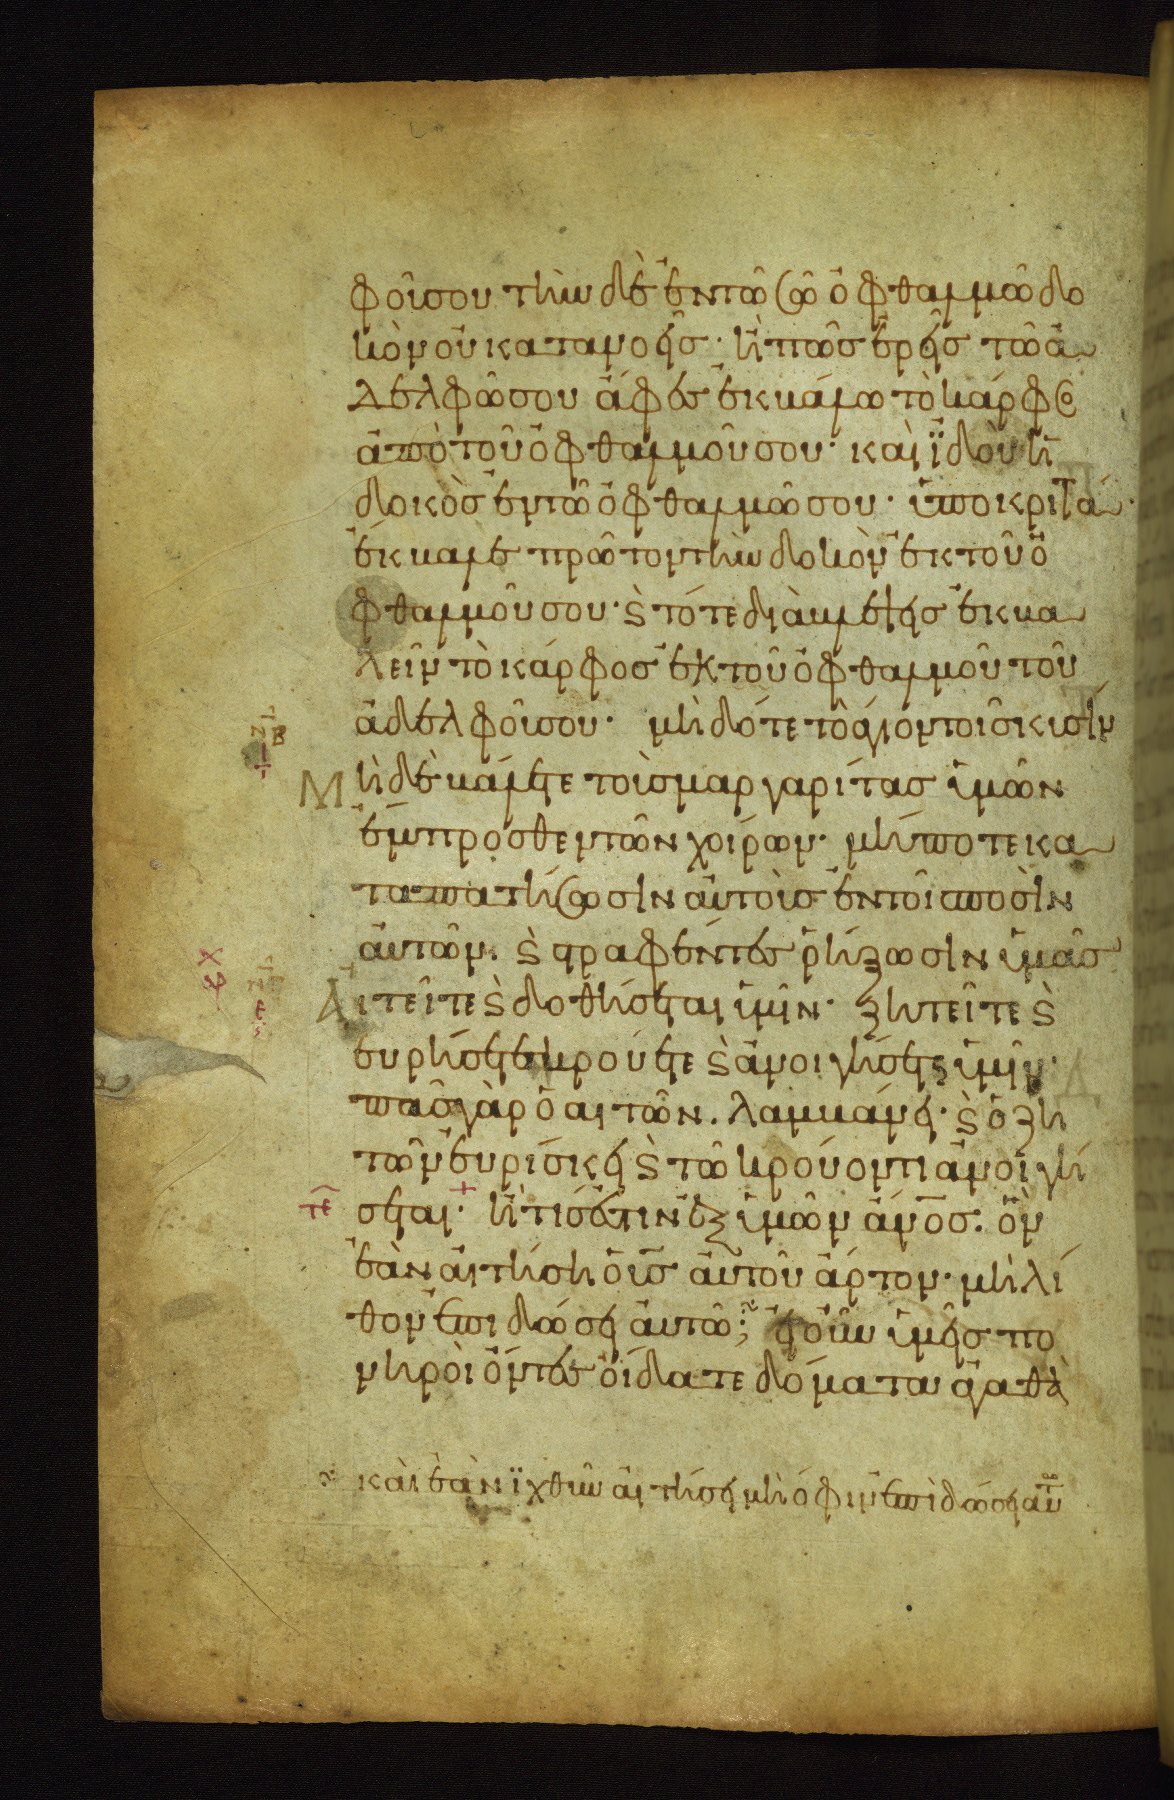 φοῦ σου τὴν δὲ ἐν τῶ σῶ ὀφθαλμῶ δο
κὸν οὐ κατανοεῖς· ἢ πῶς ἐρεῖς τῶ ἀ
δελφῶ σου ἄφες ἐκβάλω τὸ κάρφος
ἀπὸ τοῦ ὀφθαλμοῦ σου· καὶ ἰ̈δοὺ ἡ
δοκὸς ἐν τῶ ὀφθαλμῶ σου· ὑποκριτά·
ἔκβαλε πρῶτον τὴν δοκὸν ἐκ τοῦ ὀ
φθαλμοῦ σου· ϗ τότε διαβλέψεις ἐκβα
λεῖν τὸ κάρφος ἐκ τοῦ ὀφθαλμοῦ τοῦ
ἀδελφοῦ σου· μὴ δότε τὸ ἅγιον τοῖς κυσὶν
Μὴ δὲ βάλετε τοὺς μαργαρίτας ὑμῶν
ἔμπροσθεν τῶν χοίρων· μήποτε κα
ταπατήσωσιν αὐτοὺς ἐν τοῖς ποσὶν
αὐτῶν· ϗ στραφέντες ῥήξωσιν ὑμᾶς
Αἰτεῖτε ϗ δοθήσεται ὑμῖν· ζητεῖτε ϗ
εὑρήσετε κρούετε ϗ ἀνοιγήσεται ὑμῖν·
πᾶς γὰρ ὁ αἰτῶν· λαμβάνει· ϗ ὁ ζη
τῶν εὑρίσκει ϗ τῶ κρούοντι ἀνοιγή
τε σεται· ἢ τίς ἐστιν ἐξ ὑμῶν ἄνος· ὃν
ἐὰν αἰτήση ὁ υς αὐτοῦ ἄρτον· μὴ λί
θον ἐπιδώσει αὐτῶ; εἰ οὖν ὑμεῖς πο
νηροὶ ὄντες οἴδατε δόματα ἀγαθὰ
καὶ ἐὰν ἰ̈χθὺν αἰτήση μὴ ὄφιν ἐπιδώσει αὐτ